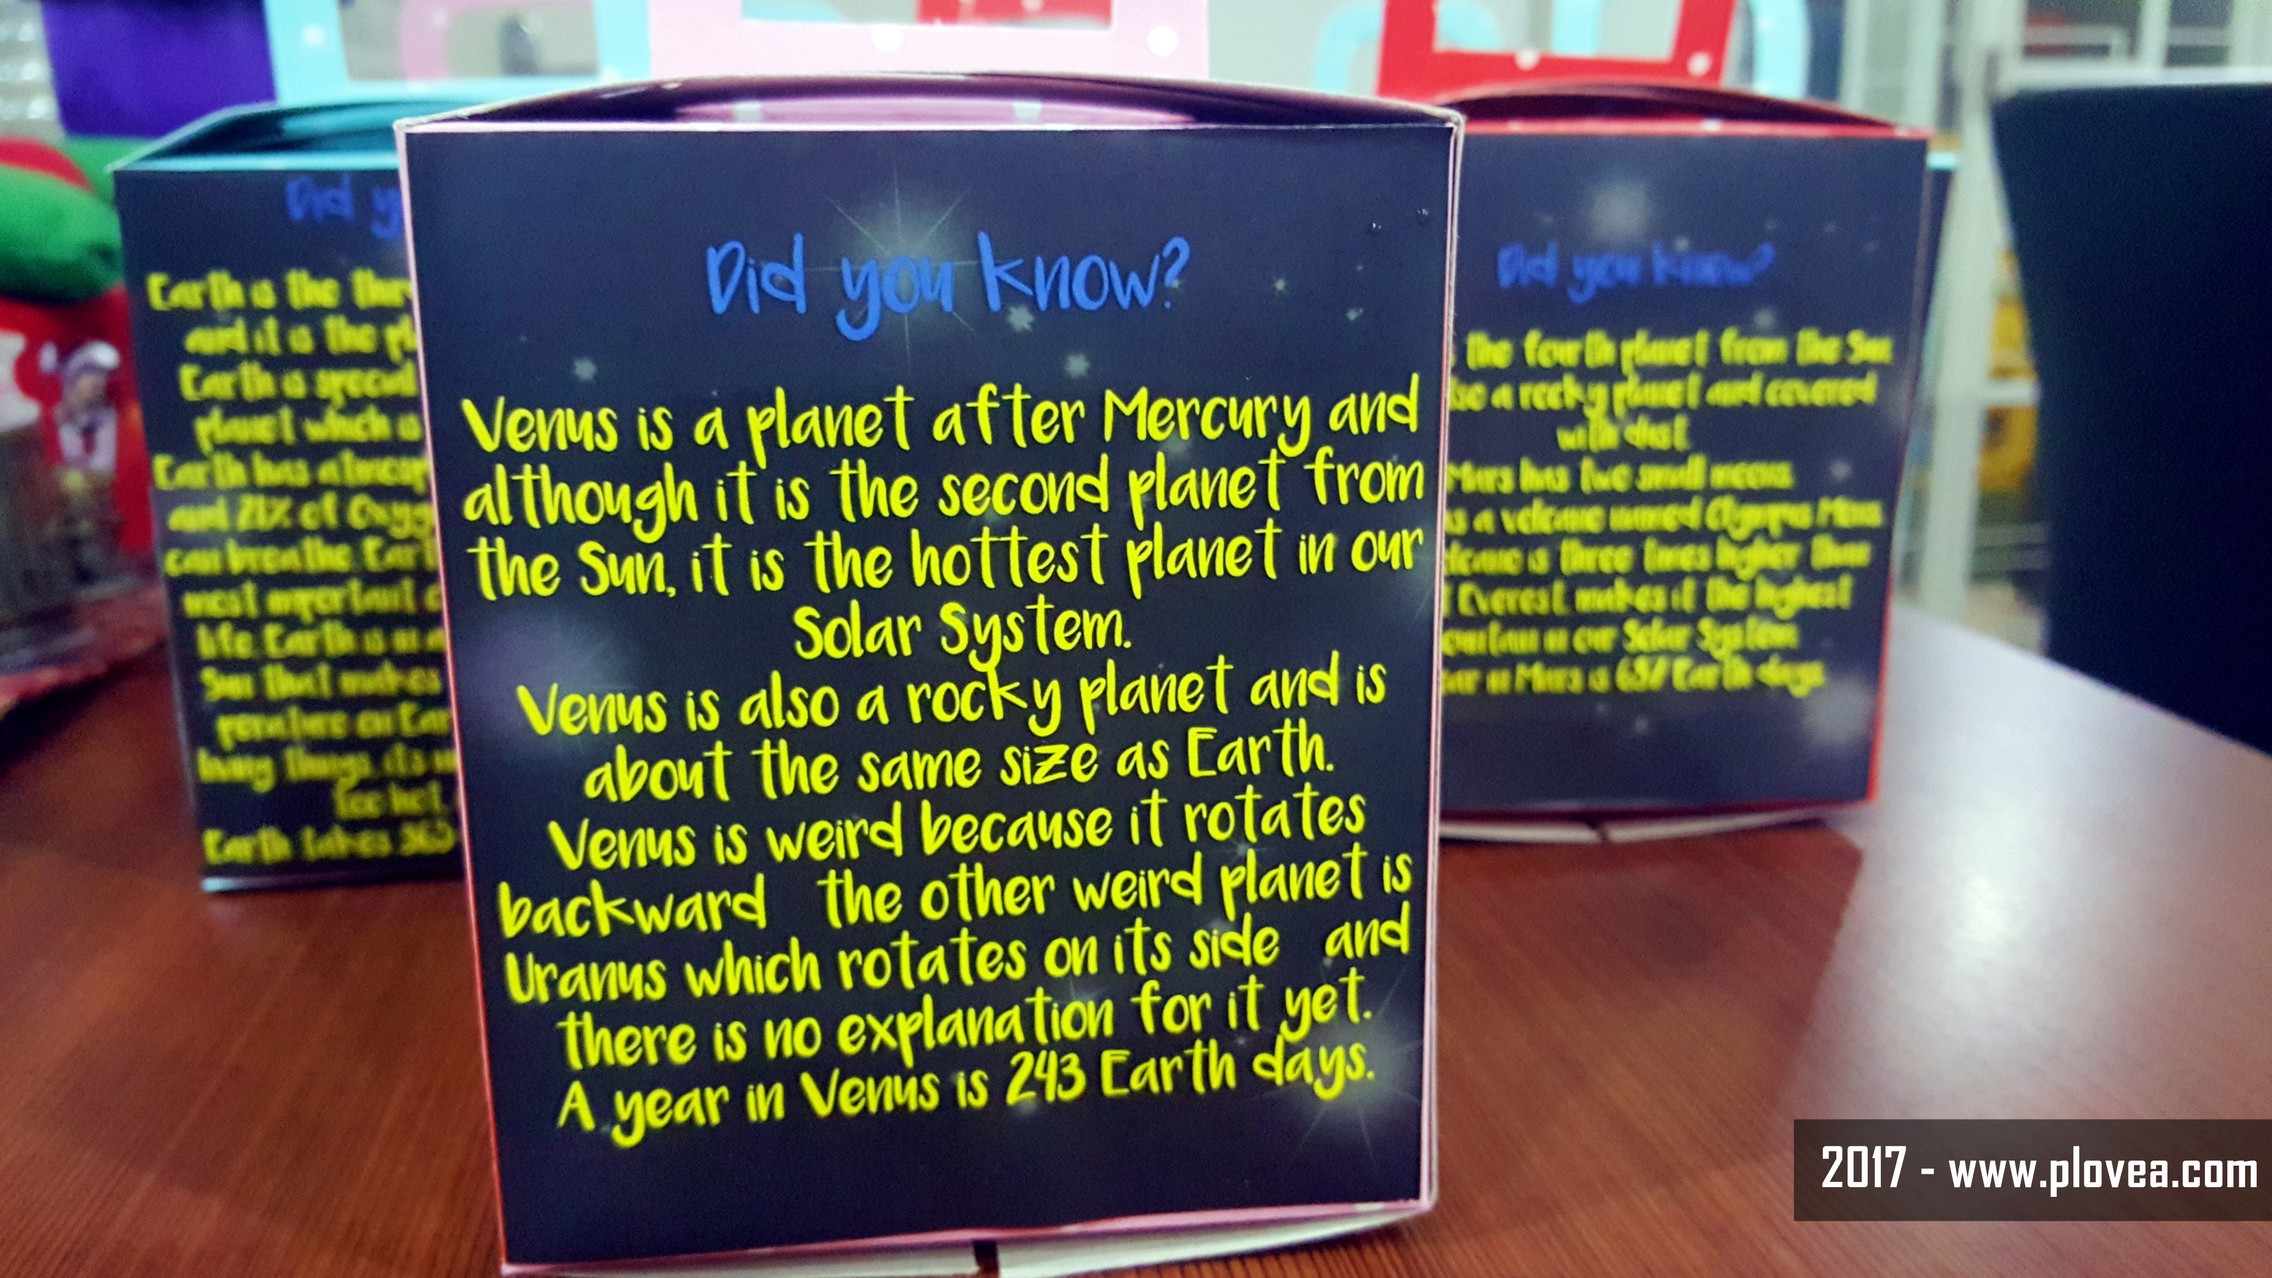 Did you know?
Venus is a planet after Mercury and
although it is the second planet from
the Sun, it is the hottest planet in our
Solar System.
Venus is also a rocky planet and is
about the same size as Earth.
Venus is weird because it rotates
backward the other weird planet is
Uranus which rotates on its side and
there is no explanation for it yet.
A year in Venus is 243 Earth days.
Did
Earth is the
and it is the
Earth is special
planet which is
Earth has
and 21% of
can breathe.
most important
life. Earth is
Sun that makes
living things,
too hot,
Earth takes
Did you know?
the fourth planet from the Sun
a rocky planet and covered
with dust
Mars has two small moons
a volcano named Olympus Mons
is three times higher than
Everest, makes it the highest
in our Solar System
in Mars is 687 Earth days
2017 - www.plovea.com